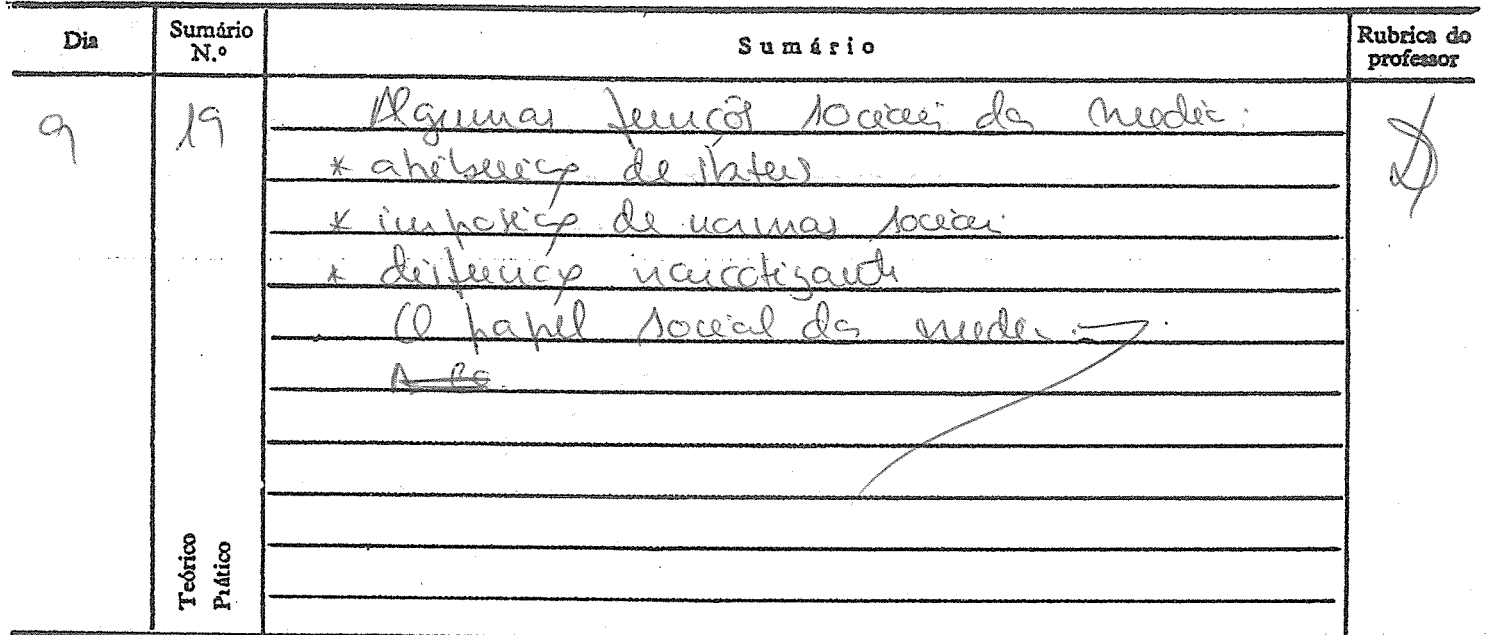 Dia Sumário N.º Sumário Rubrica do professor
9 19 Algumas funções sociais dos media:
* atribuição de status
* imposição de normas sociais
* disfunção narcotizante
O papel social dos media.
Teórico
Prático